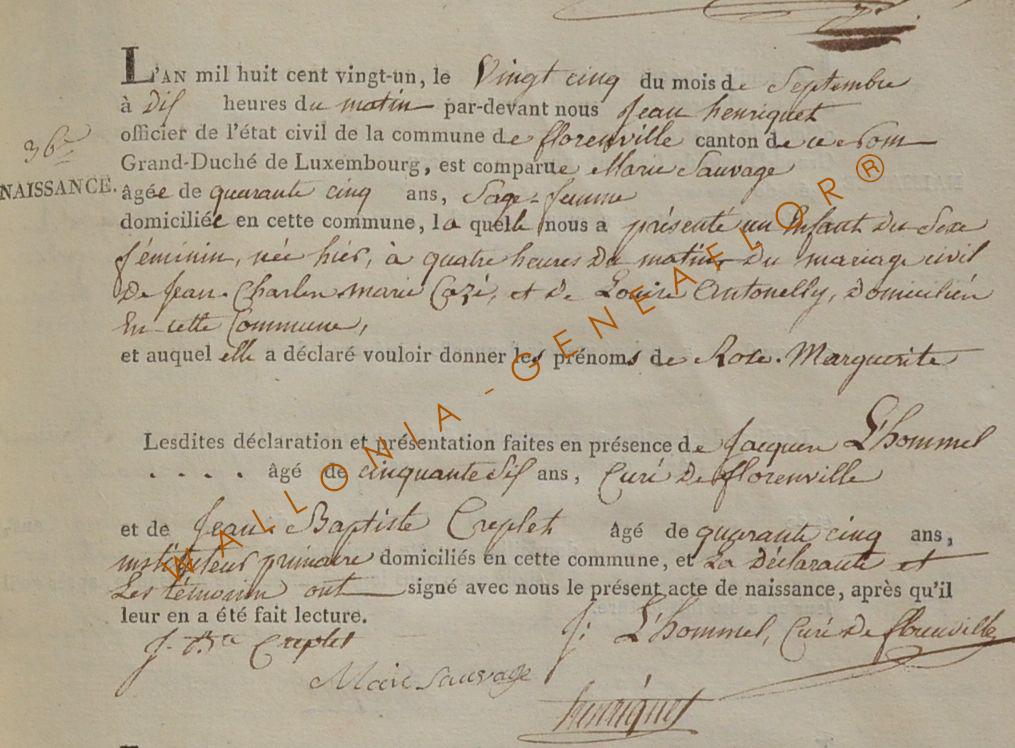 L'AN mil huit cent vingt-un, le Vingt cinq du mois de Septembre
à Dix heures du matin par-devant nous Jean henriquet
officier de l'état civil de la commune de florenville canton de ce Nom
36e
Grand-Duché de Luxembourg, est comparue Marie Sauvage
NAISSANCE.
âgée de quarante cinq ans, Sage-femme
domiciliée en cette commune, la quelle nous a présenté un Enfant du Sexe
féminin, née hier, à quatre heures du matin, du mariage civil
De Jean-Charles-marie Cozé, et de Louise Antonelly, domiciliés
En cette Commune,
et auquel elle a déclaré vouloir donner les prénoms de Rose-Marguerite
Lesdites déclaration et présentation faites en présence de Jacques L'hommel
. . . . âgé de cinquante dix ans, Curé De florenville
et de Jean-Baptiste Creplet âgé de quarante cinq ans,
instituteur primaire domiciliés en cette commune, et La Déclarante et
Les témoins ont signé avec nous le présent acte de naissance, après qu'il
leur en a été fait lecture.
J. Bte Creplet
J: L'hommel, Curé de florenville
Marie Sauvage
henriquet
WALLONIA - GENEAFLOR®